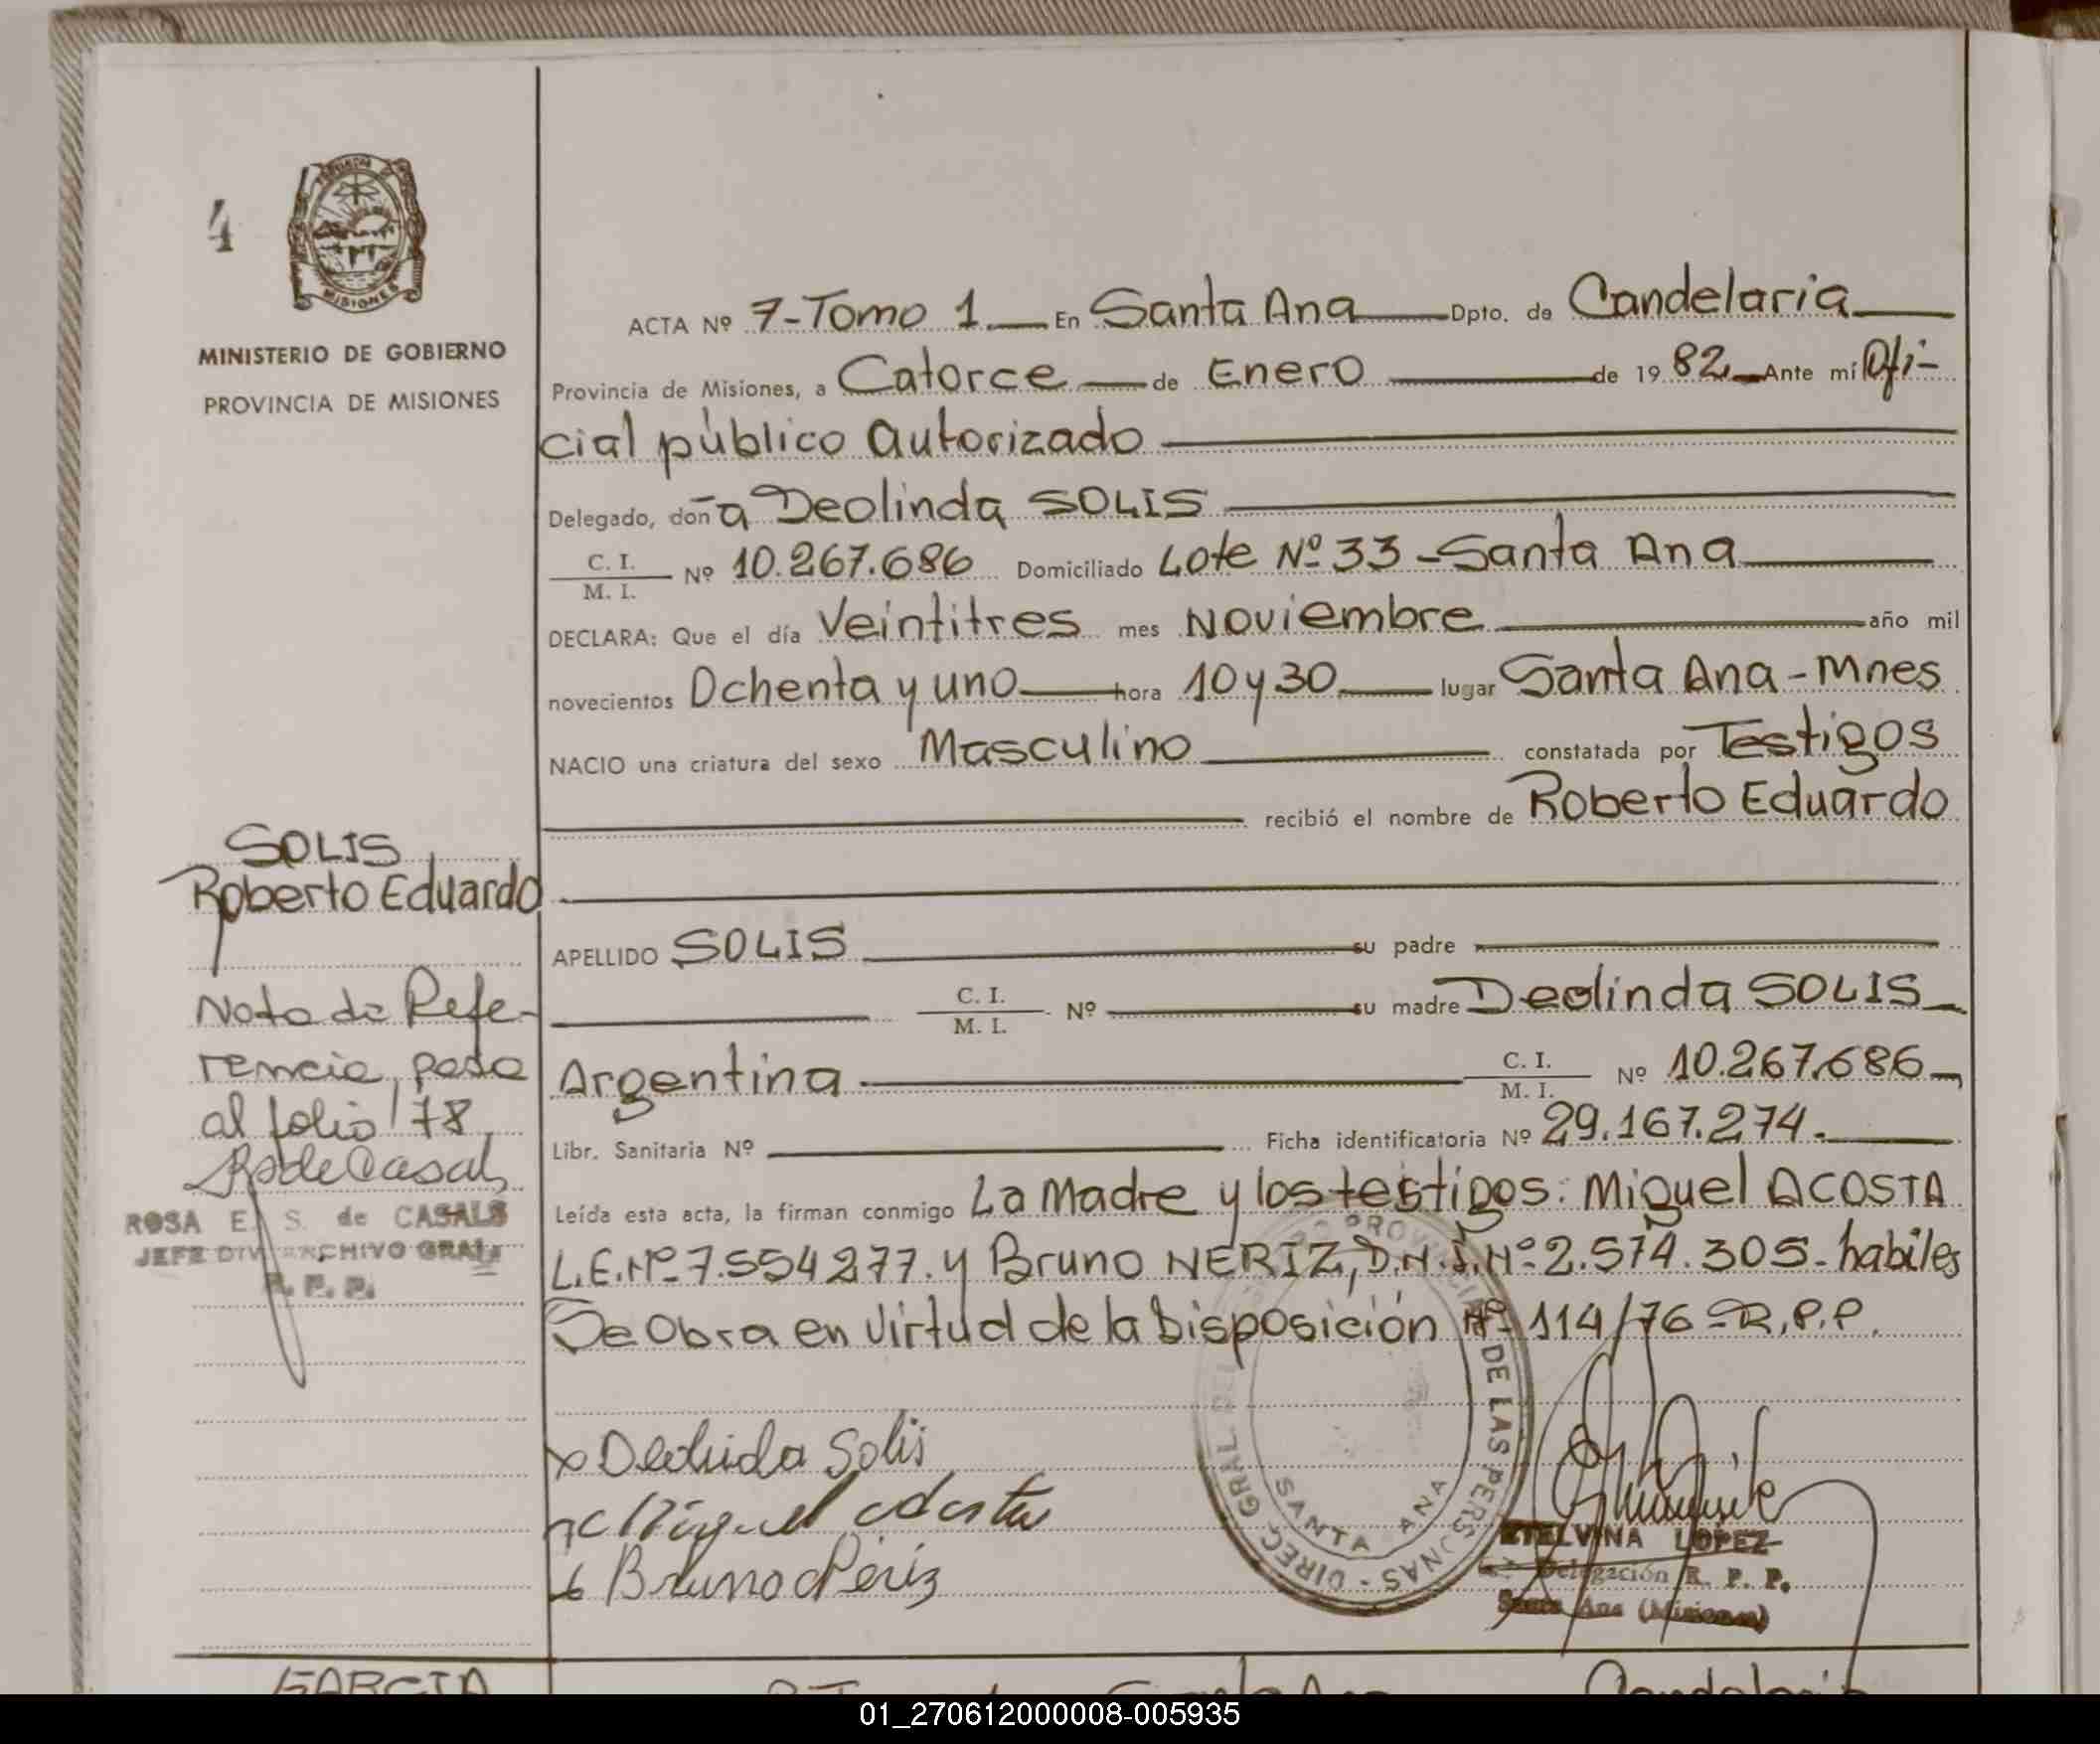 4
MISIONES
MINISTERIO DE GOBIERNO
PROVINCIA DE MISIONES
ACTA Nº 7-Tomo 1 En Santa Ana Dpto. de Candelaria
Provincia de Misiones, a Catorce de Enero de 1982 Ante mí Ofi-
cial público autorizado
Delegado, doña Deolinda SOLIS
C. I.
M. I. Nº 10.267.686 Domiciliado Lote Nº 33-Santa Ana
DECLARA: Que el día Veintitres mes Noviembre año mil
novecientos Ochenta y uno hora 10 y 30 lugar Santa Ana-Mnes
NACIO una criatura del sexo Masculino constatada por Testigos
recibió el nombre de Roberto Eduardo
SOLIS
Roberto Eduardo
APELLIDO SOLIS su padre
C. I.
M. I. Nº su madre Deolinda SOLIS
Argentina C. I.
M. I. Nº 10.267.686
Libr. Sanitaria Nº Ficha identificatoria Nº 29.167.274.
Leída esta acta, la firman conmigo La Madre y los testigos: Miguel ACOSTA
L.E.Nº 7.554277. y Bruno NERIZ, D.N.I.Nº 2.574.305-habiles
Se Obra en virtud de la Disposición Nº 114/76-R.P.P.
Nota de Refe-
rencia, pasa
al folio 78
RSdeCasals
ROSA E. S. de CASALS
JEFE DIV ARCHIVO GRAL
R. P. P.
x Deolinda Solis
Miguel Acosta
Bruno Neriz
DIREC. GRAL. DEL PROVINCIAL DE LAS PERSONAS
SANTA ANA
ETELVINA LOPEZ
Delegación R. P. P.
Santa Ana (Misiones)
GARCIA
01_270612000008-005935